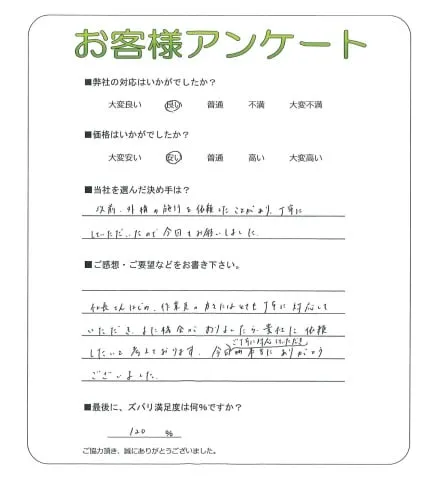 お客様アンケート
■弊社の対応はいかがでしたか?
大変良い 良い 普通 不満 大変不満
■価格はいかがでしたか?
大変安い 安い 普通 高い 大変高い
■当社を選んだ決め手は?
以前、外構の設計を依頼したことがあり、丁寧に
していただいたので今回もお願いしました。
■ご感想・ご要望などをお書き下さい。
社長さんはじめ、作業員の方々にはとても丁寧に対応して
いただき、また機会がありましたら貴社に依頼
したいと考えております。今回
ご丁寧に対応いただき
本当にありがとう
ございました。
■最後に、ズバリ満足度は何%ですか?
120 %
ご協力頂き、誠にありがとうございました。